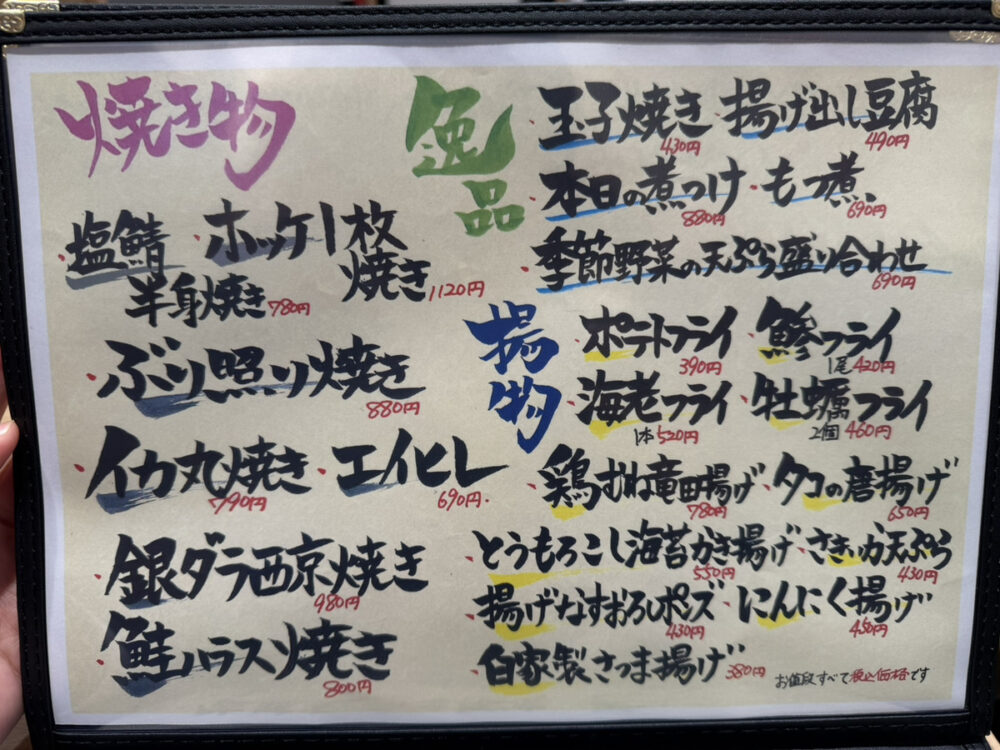 焼き物
・塩鯖
半身焼き 780円
・ホッケ1枚
焼き 1120円
・ぶり照り焼き
880円
・イカ丸焼き ・エイヒレ
790円 690円
・銀ダラ西京焼き
980円
・鮭ハラス焼き
800円
逸品
・玉子焼き ・揚げ出し豆腐
430円 490円
・本日の煮つけ ・もつ煮
880円 690円
・季節野菜の天ぷら盛り合わせ
690円
揚物
・ポテトフライ ・鯵フライ
390円 1尾420円
・海老フライ ・牡蠣フライ
1本520円 2個460円
・鶏むね竜田揚げ ・タコの唐揚げ
780円 650円
・とうもろこし海苔かき揚げ ・さきいか天ぷら
550円 430円
・揚げなすおろしポンズ ・にんにく揚げ
430円 450円
・自家製さつま揚げ 380円
お値段すべて税込価格です